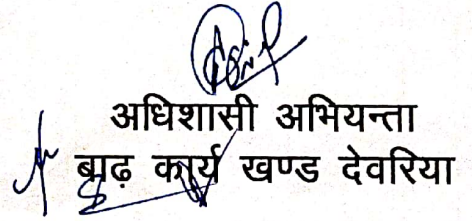 अधिशासी अभियन्ता
बाढ़ कार्य खण्ड देवरिया